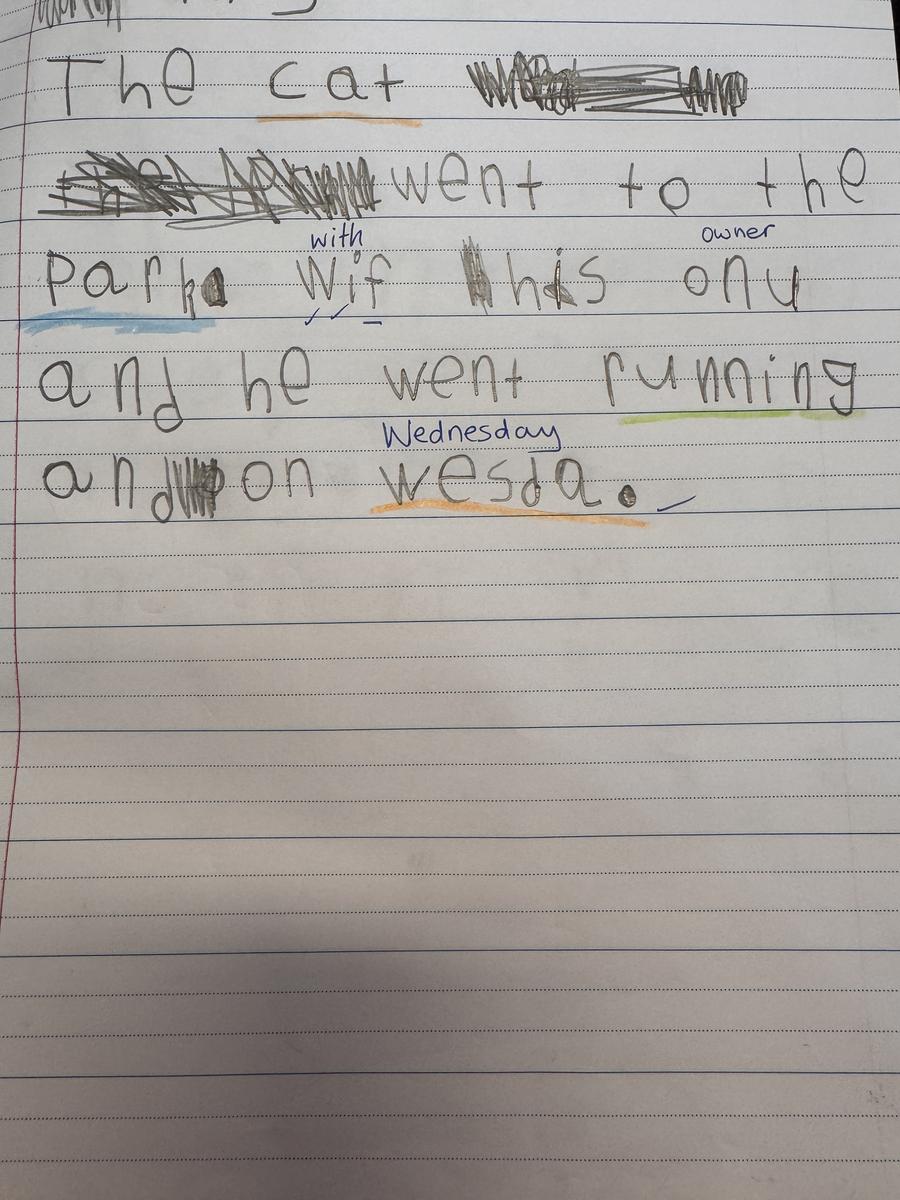 The cat
went to the
with owner
Park Wif his onu
and he went running
Wednesday
and on wesda.